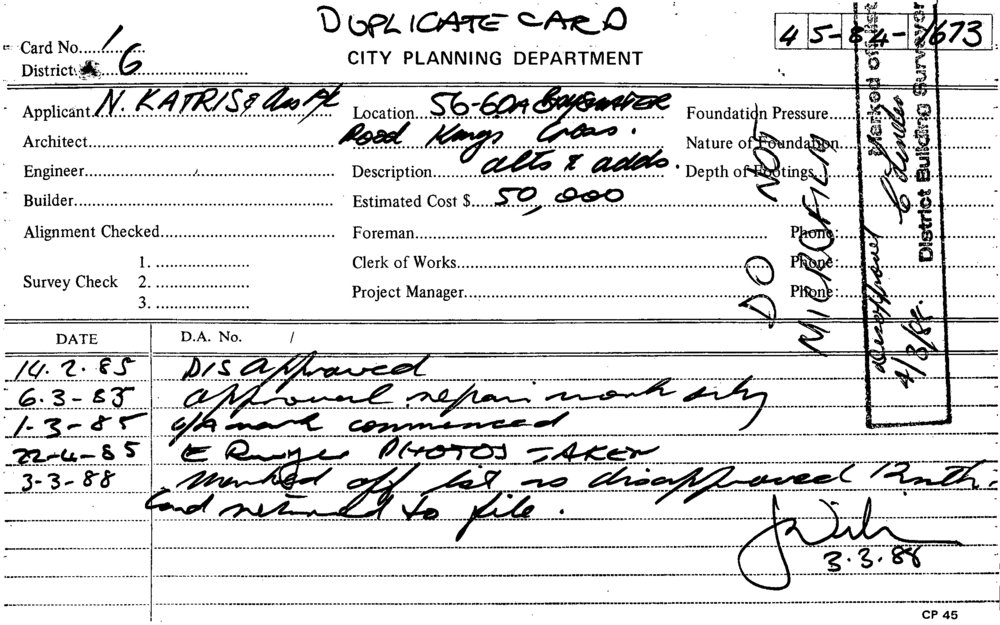 DUPLICATE CARD
Card No. 1
CITY PLANNING DEPARTMENT
45-84-1673
District 6
Applicant N. KATRIS & Ass P/L
Location 56-60A BAYSWATER
Road Kings Cross.
Foundation Pressure
Architect
Nature of Foundation
Engineer
Description alts & adds.
Depth of Footings
Builder
Estimated Cost $ 50,000
Alignment Checked
Foreman
Phone:
Survey Check
1.
2.
3.
Clerk of Works
Phone:
Project Manager
Phone:
DO NOT
MICROFILM
Marked off list
Disapproved
4/3/88.
District Building Surveyor
DATE
D.A. No. /
14.2.85 DISapproved
6.3-85 approval repair work only
1-3-85 work commenced
22-4-85 E PHOTOS TAKEN
3-3-88 Marked off list as disapproved
Card returned to file.
3.3.88
CP 45